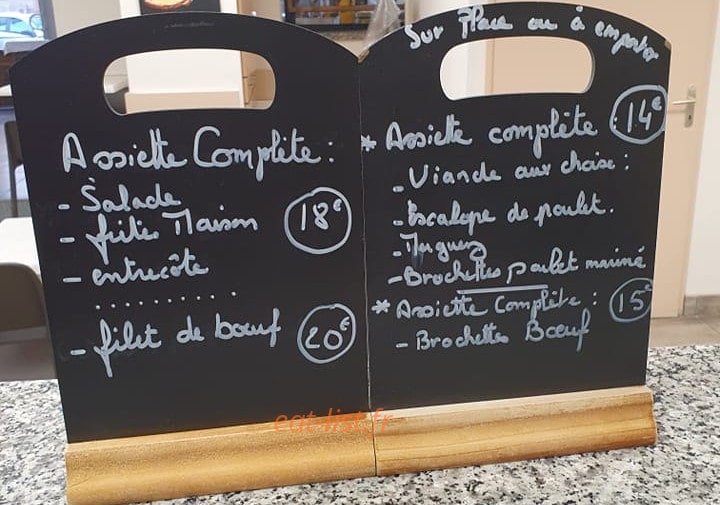 Assiette Complète :
- Salade
- frites Maison 18€
- entrecôte
..........
- filet de bœuf 20€
Sur Place ou à emporter
* Assiette complète 14€
- Viande aux choix :
- Escalope de poulet.
- Merguez
- Brochettes poulet mariné
* Assiette Complète : 15€
- Brochettes Bœuf
eat-list.fr